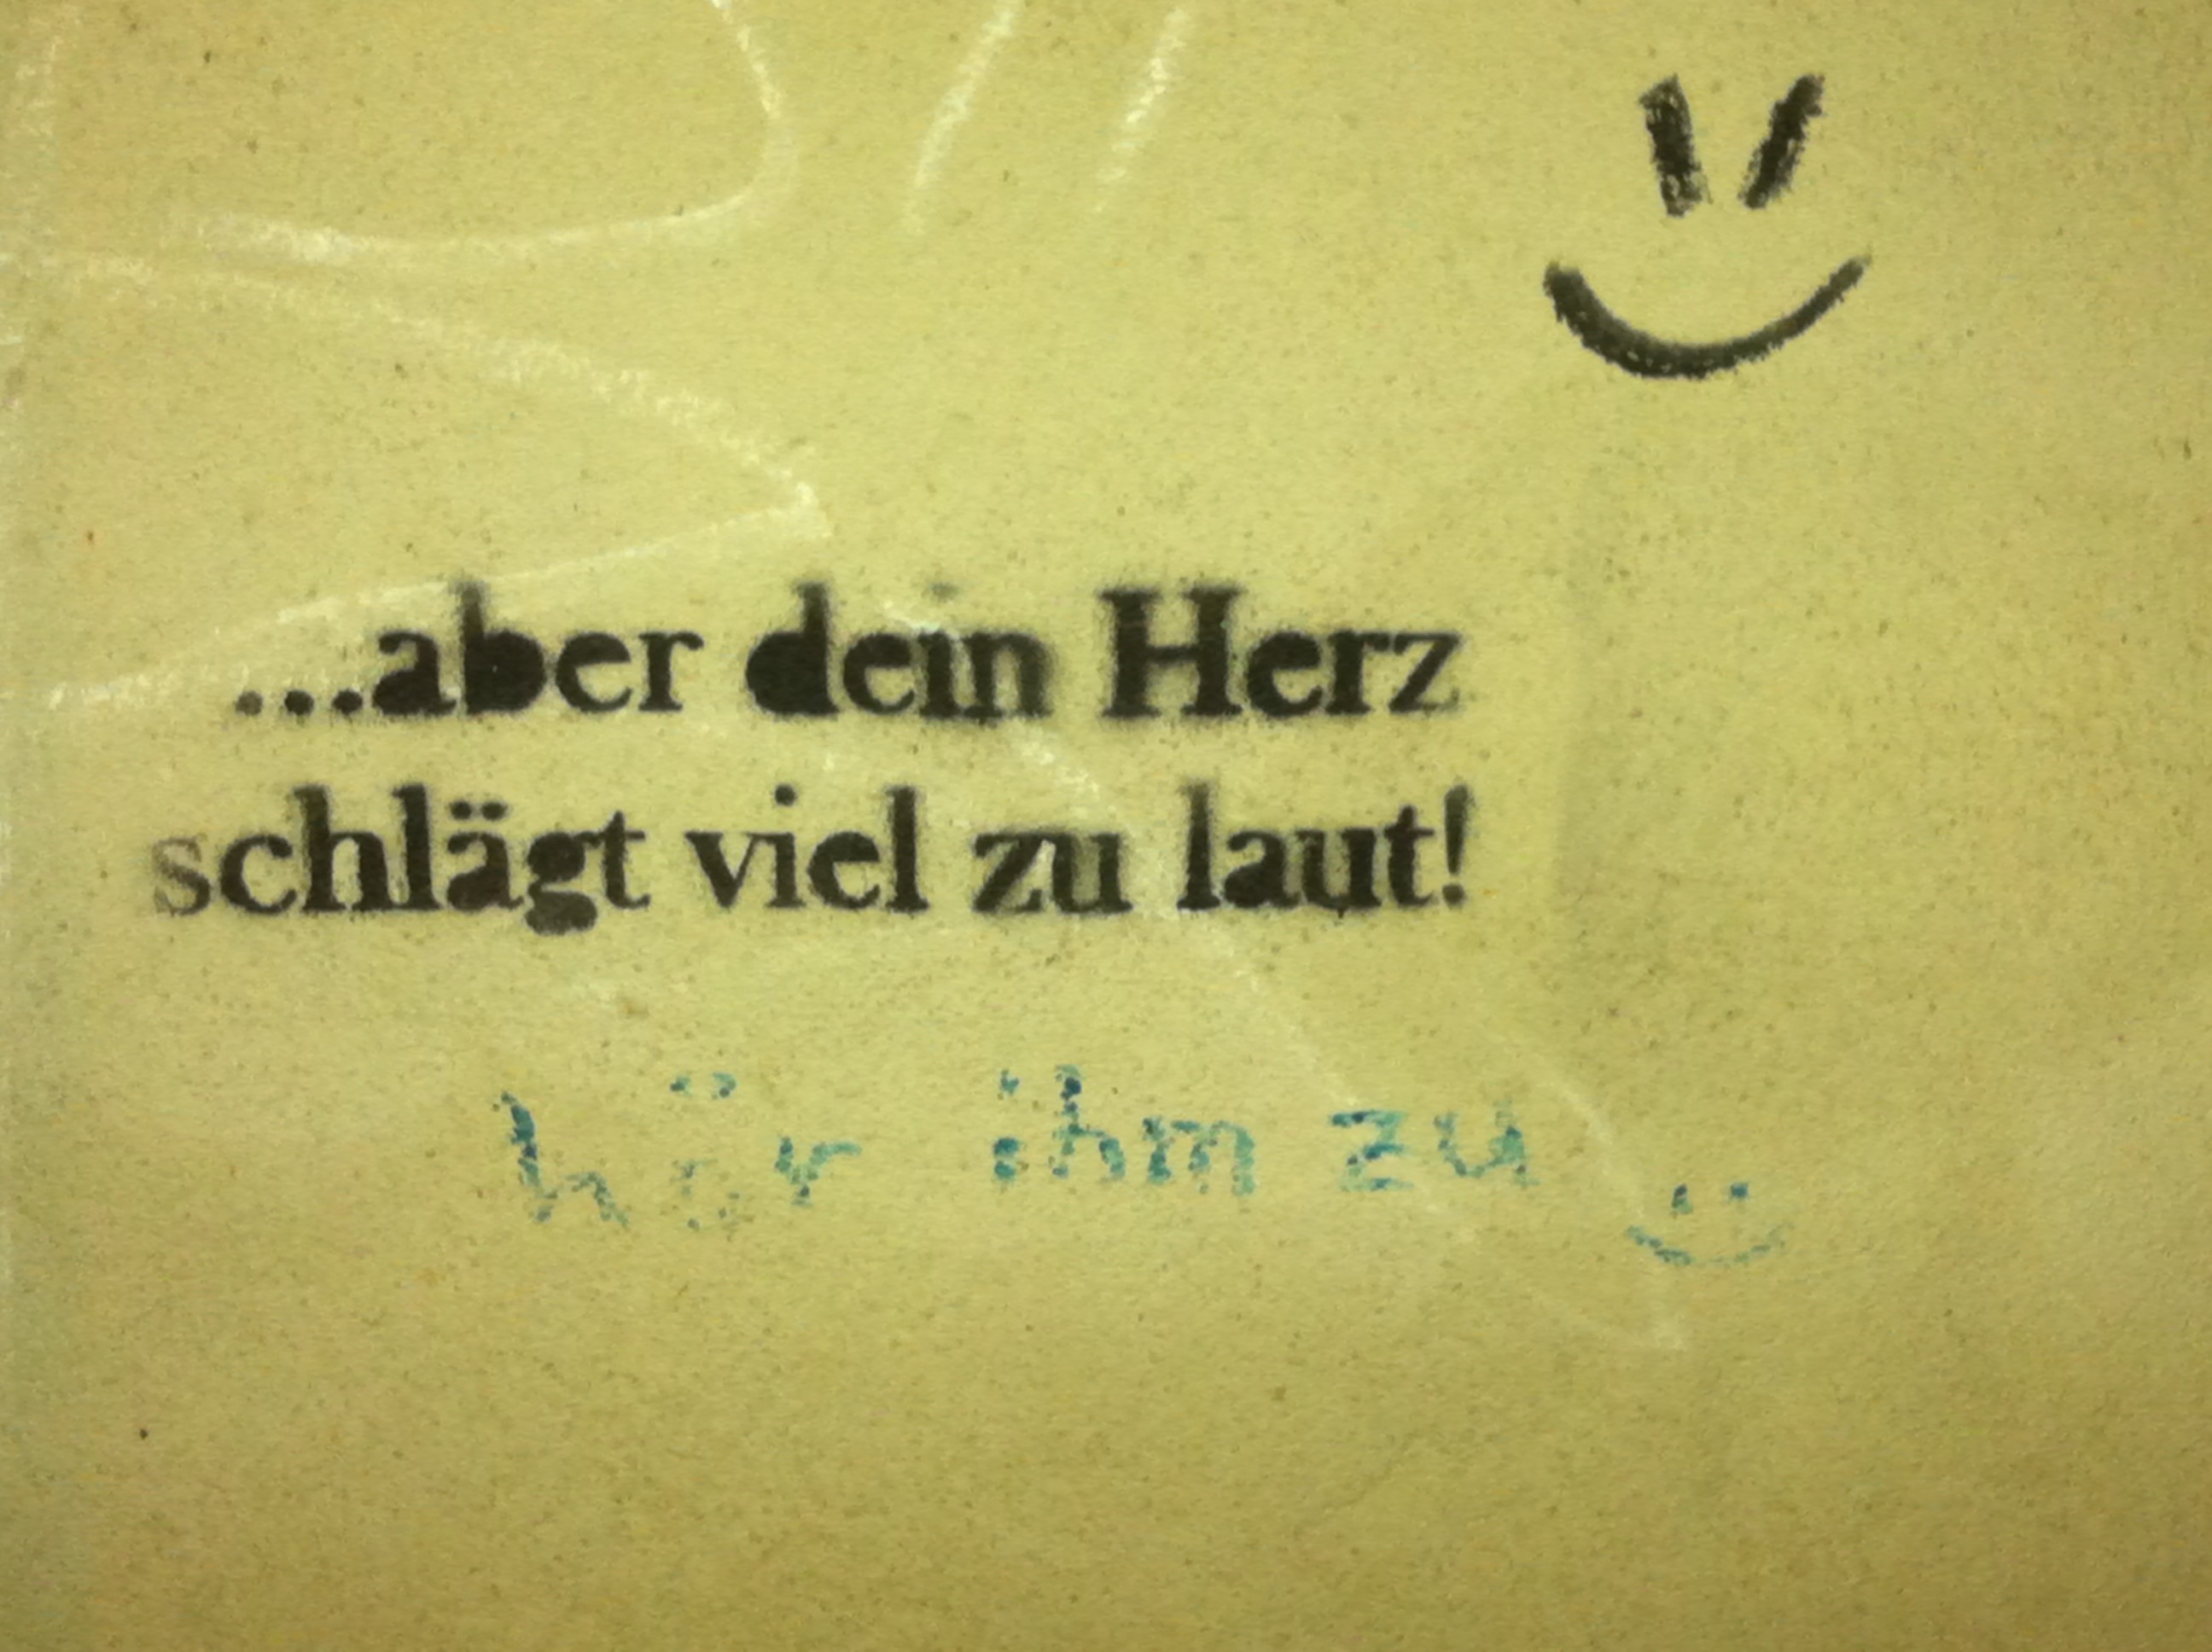 ...aber dein Herz
schlägt viel zu laut!
hör ihm zu